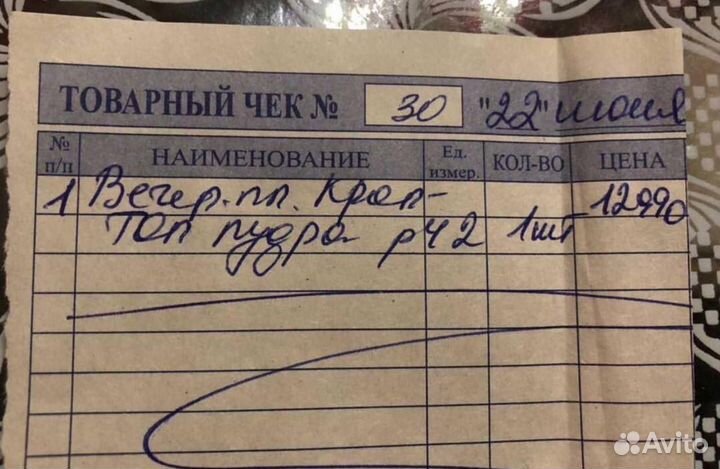 ТОВАРНЫЙ ЧЕК № 30 "22" июня
№ п/п НАИМЕНОВАНИЕ Ед. измер. КОЛ-ВО ЦЕНА
1 Вечер. пл. Кроп- 12990
Топ пудра р42 1шт
Avito